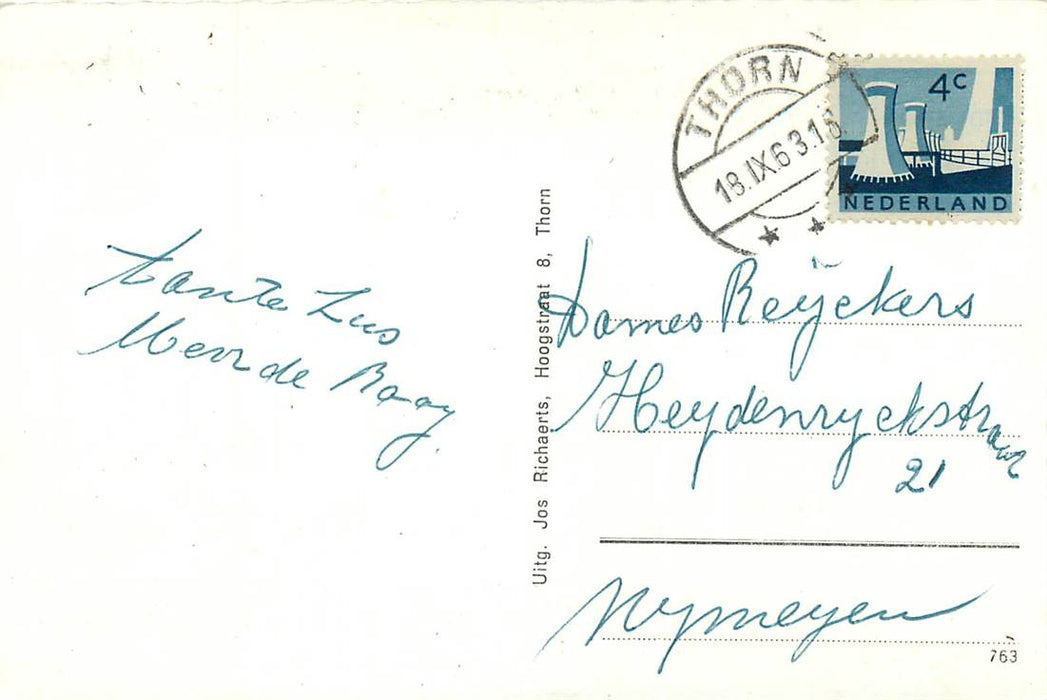 THORN
18.IX.63.16
4c
NEDERLAND
tante Zus
Mevr de Rooy.
Uitg. Jos Richaerts, Hoogstraat 8, Thorn
Dames Reijckers
Heydenryckstraat
21
Nymegen
763